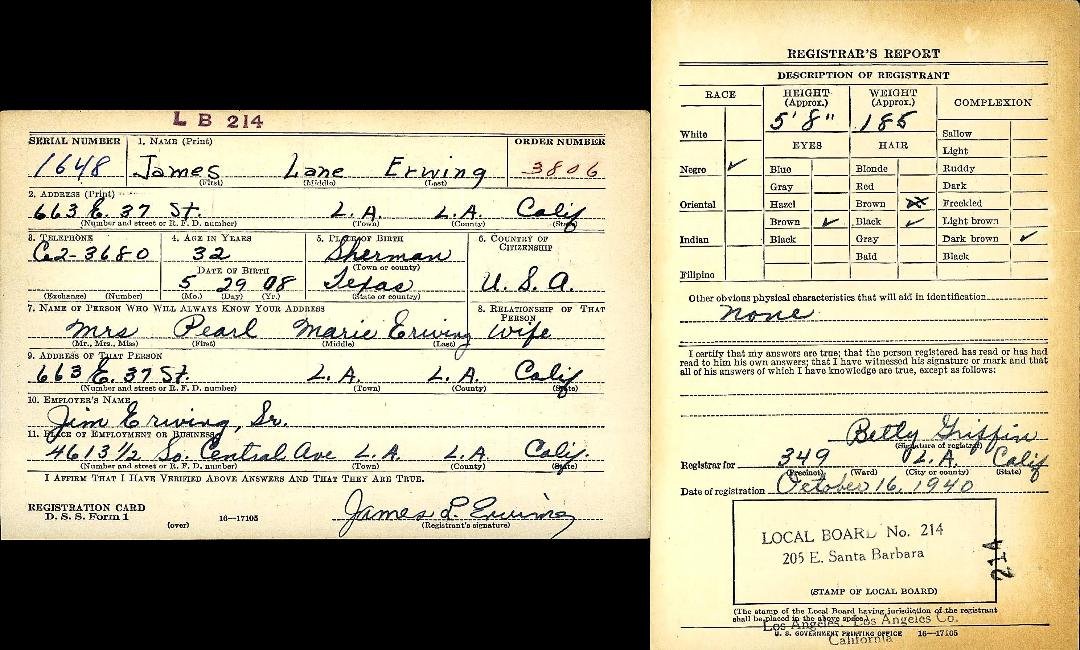 L B 214
SERIAL NUMBER 1. NAME (Print) ORDER NUMBER
1648 James Lane Erwing 3806
(First) (Middle) (Last)
2. ADDRESS (Print)
663 E. 37 St. L.A. L.A. Calif
(Number and street or R. F. D. number) (Town) (County) (State)
3. TELEPHONE 4. AGE IN YEARS 5. PLACE OF BIRTH 6. COUNTRY OF CITIZENSHIP
Ce2-3680 32 Sherman
(Town or county)
DATE OF BIRTH
5 29 08 Texas U. S. A.
(Exchange) (Number) (Mo.) (Day) (Yr.) (State or country)
7. NAME OF PERSON WHO WILL ALWAYS KNOW YOUR ADDRESS 8. RELATIONSHIP OF THAT PERSON
Mrs Pearl Marie Erwing wife
(Mr., Mrs., Miss) (First) (Middle) (Last)
9. ADDRESS OF THAT PERSON
663 E. 37 St. L.A. L.A. Calif
(Number and street or R. F. D. number) (Town) (County) (State)
10. EMPLOYER'S NAME
Jim Erwing, Sr.
11. PLACE OF EMPLOYMENT OR BUSINESS
4613 1/2 So. Central Ave L.A. L.A. Calif.
(Number and street or R. F. D. number) (Town) (County) (State)
I AFFIRM THAT I HAVE VERIFIED ABOVE ANSWERS AND THAT THEY ARE TRUE.
REGISTRATION CARD
D. S. S. Form 1 (over) 16—17105
James L. Erwing
(Registrant's signature)
REGISTRAR'S REPORT
DESCRIPTION OF REGISTRANT
RACE HEIGHT (Approx.) WEIGHT (Approx.) COMPLEXION
5' 8" 185
White Sallow
EYES HAIR Light
Negro ✓ Blue Blonde Ruddy
Gray Red Dark
Oriental Hazel Brown Freckled
Brown ✓ Black ✓ Light brown
Indian Black Gray Dark brown ✓
Bald Black
Filipino
Other obvious physical characteristics that will aid in identification
none
I certify that my answers are true; that the person registered has read or has had
read to him his own answers; that I have witnessed his signature or mark and that
all of his answers of which I have knowledge are true, except as follows:
Betty Griffin
(Signature of registrar)
Registrar for 349 L.A. Calif
(Precinct) (Ward) (City or county) (State)
Date of registration October 16, 1940
LOCAL BOARD No. 214
205 E. Santa Barbara
214
(STAMP OF LOCAL BOARD)
(The stamp of the Local Board having jurisdiction of the registrant
shall be placed in the above space.)
Los Angeles, Los Angeles Co.
U. S. GOVERNMENT PRINTING OFFICE 16—17105
California